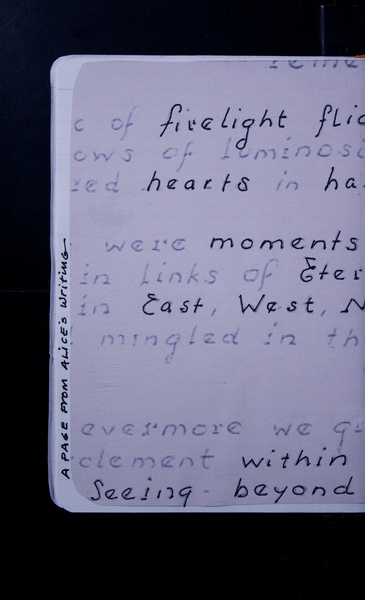 of firelight
of luminosi
hearts in ha
were moments
in links of Eter
in East, West, N
mingled in th
evermore we
clement within
Seeing beyond
A PAGE FROM ALICE'S WRITING